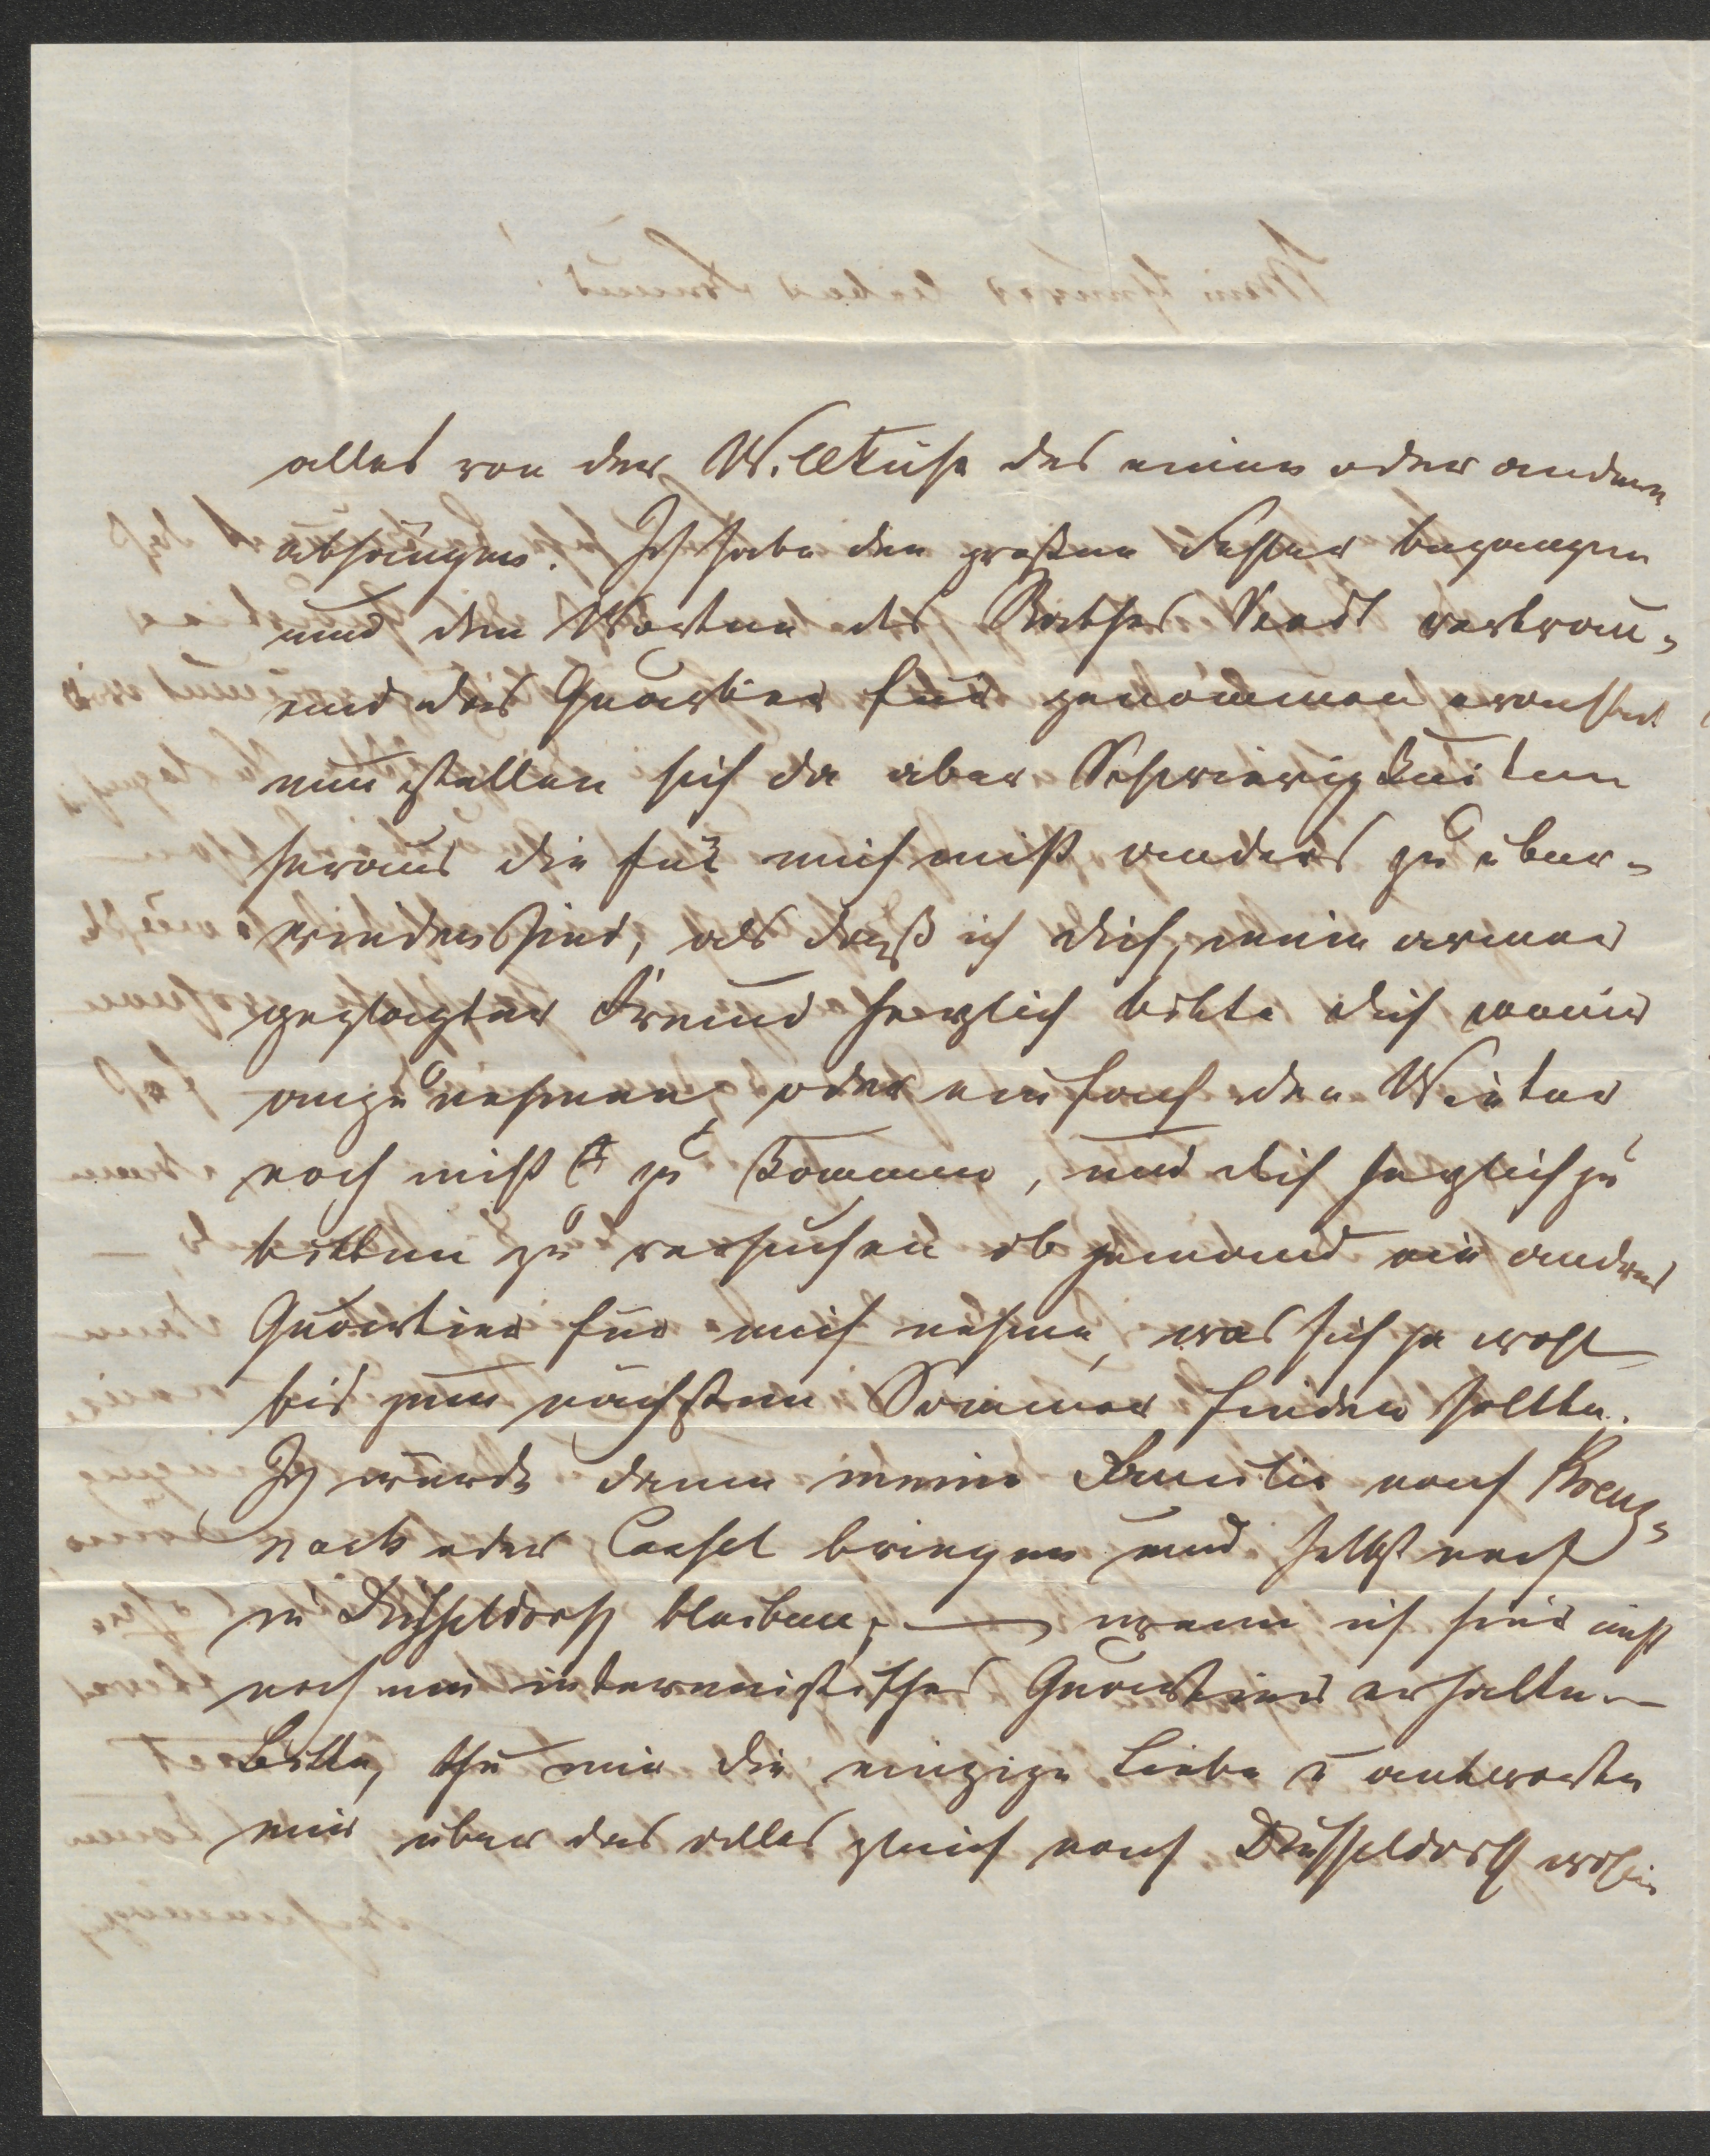 alles von der Willkühr des einen oder andern
abhängen. Ich habe den großen Fehler begangen
und den Worten des Rathes Stadt vertrau-
end das Quartier für genommen erachtet
nun stellen sich da aber Schwierigkeiten
heraus die für mich nicht anders zu über-
winden sind, als daß ich dich, mein armer
geplagter Freund herzlich bitte dich meiner
anzunehmen, oder einfach den Winter
noch nicht zu kommen, und dich herzlich zu
bitten zu versuchen ob jemand ein andres
Quartier für mich nehme, was sich ja wohl
bis zum nächsten Sommer finden sollte.
Ich würde dann meine Familie nach Kreuz-
nach oder Cassel bringen und selbst noch
in Düsseldorf bleiben, — wenn ich hier nicht
noch ein interimistisches Quartier erhalte. —
Bitte, thu mir die einzige Liebe u antworte
mir über das alles gleich nach Düsseldorf wohin